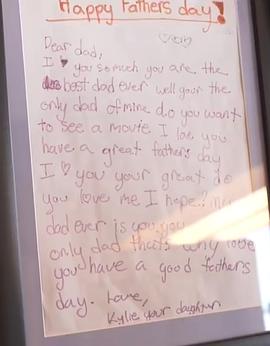 Happy Fathers day!
Dear dad,
I ♥ you so much you are the
best dad ever well your the
only dad of mine do you want
to see a movie I love you
have a great fathers day
I ♡ you your great do
you love me I hope! My
dad ever is you you
only dad thats why love
you have a good fathers
day. Love,
Kylie your daughter